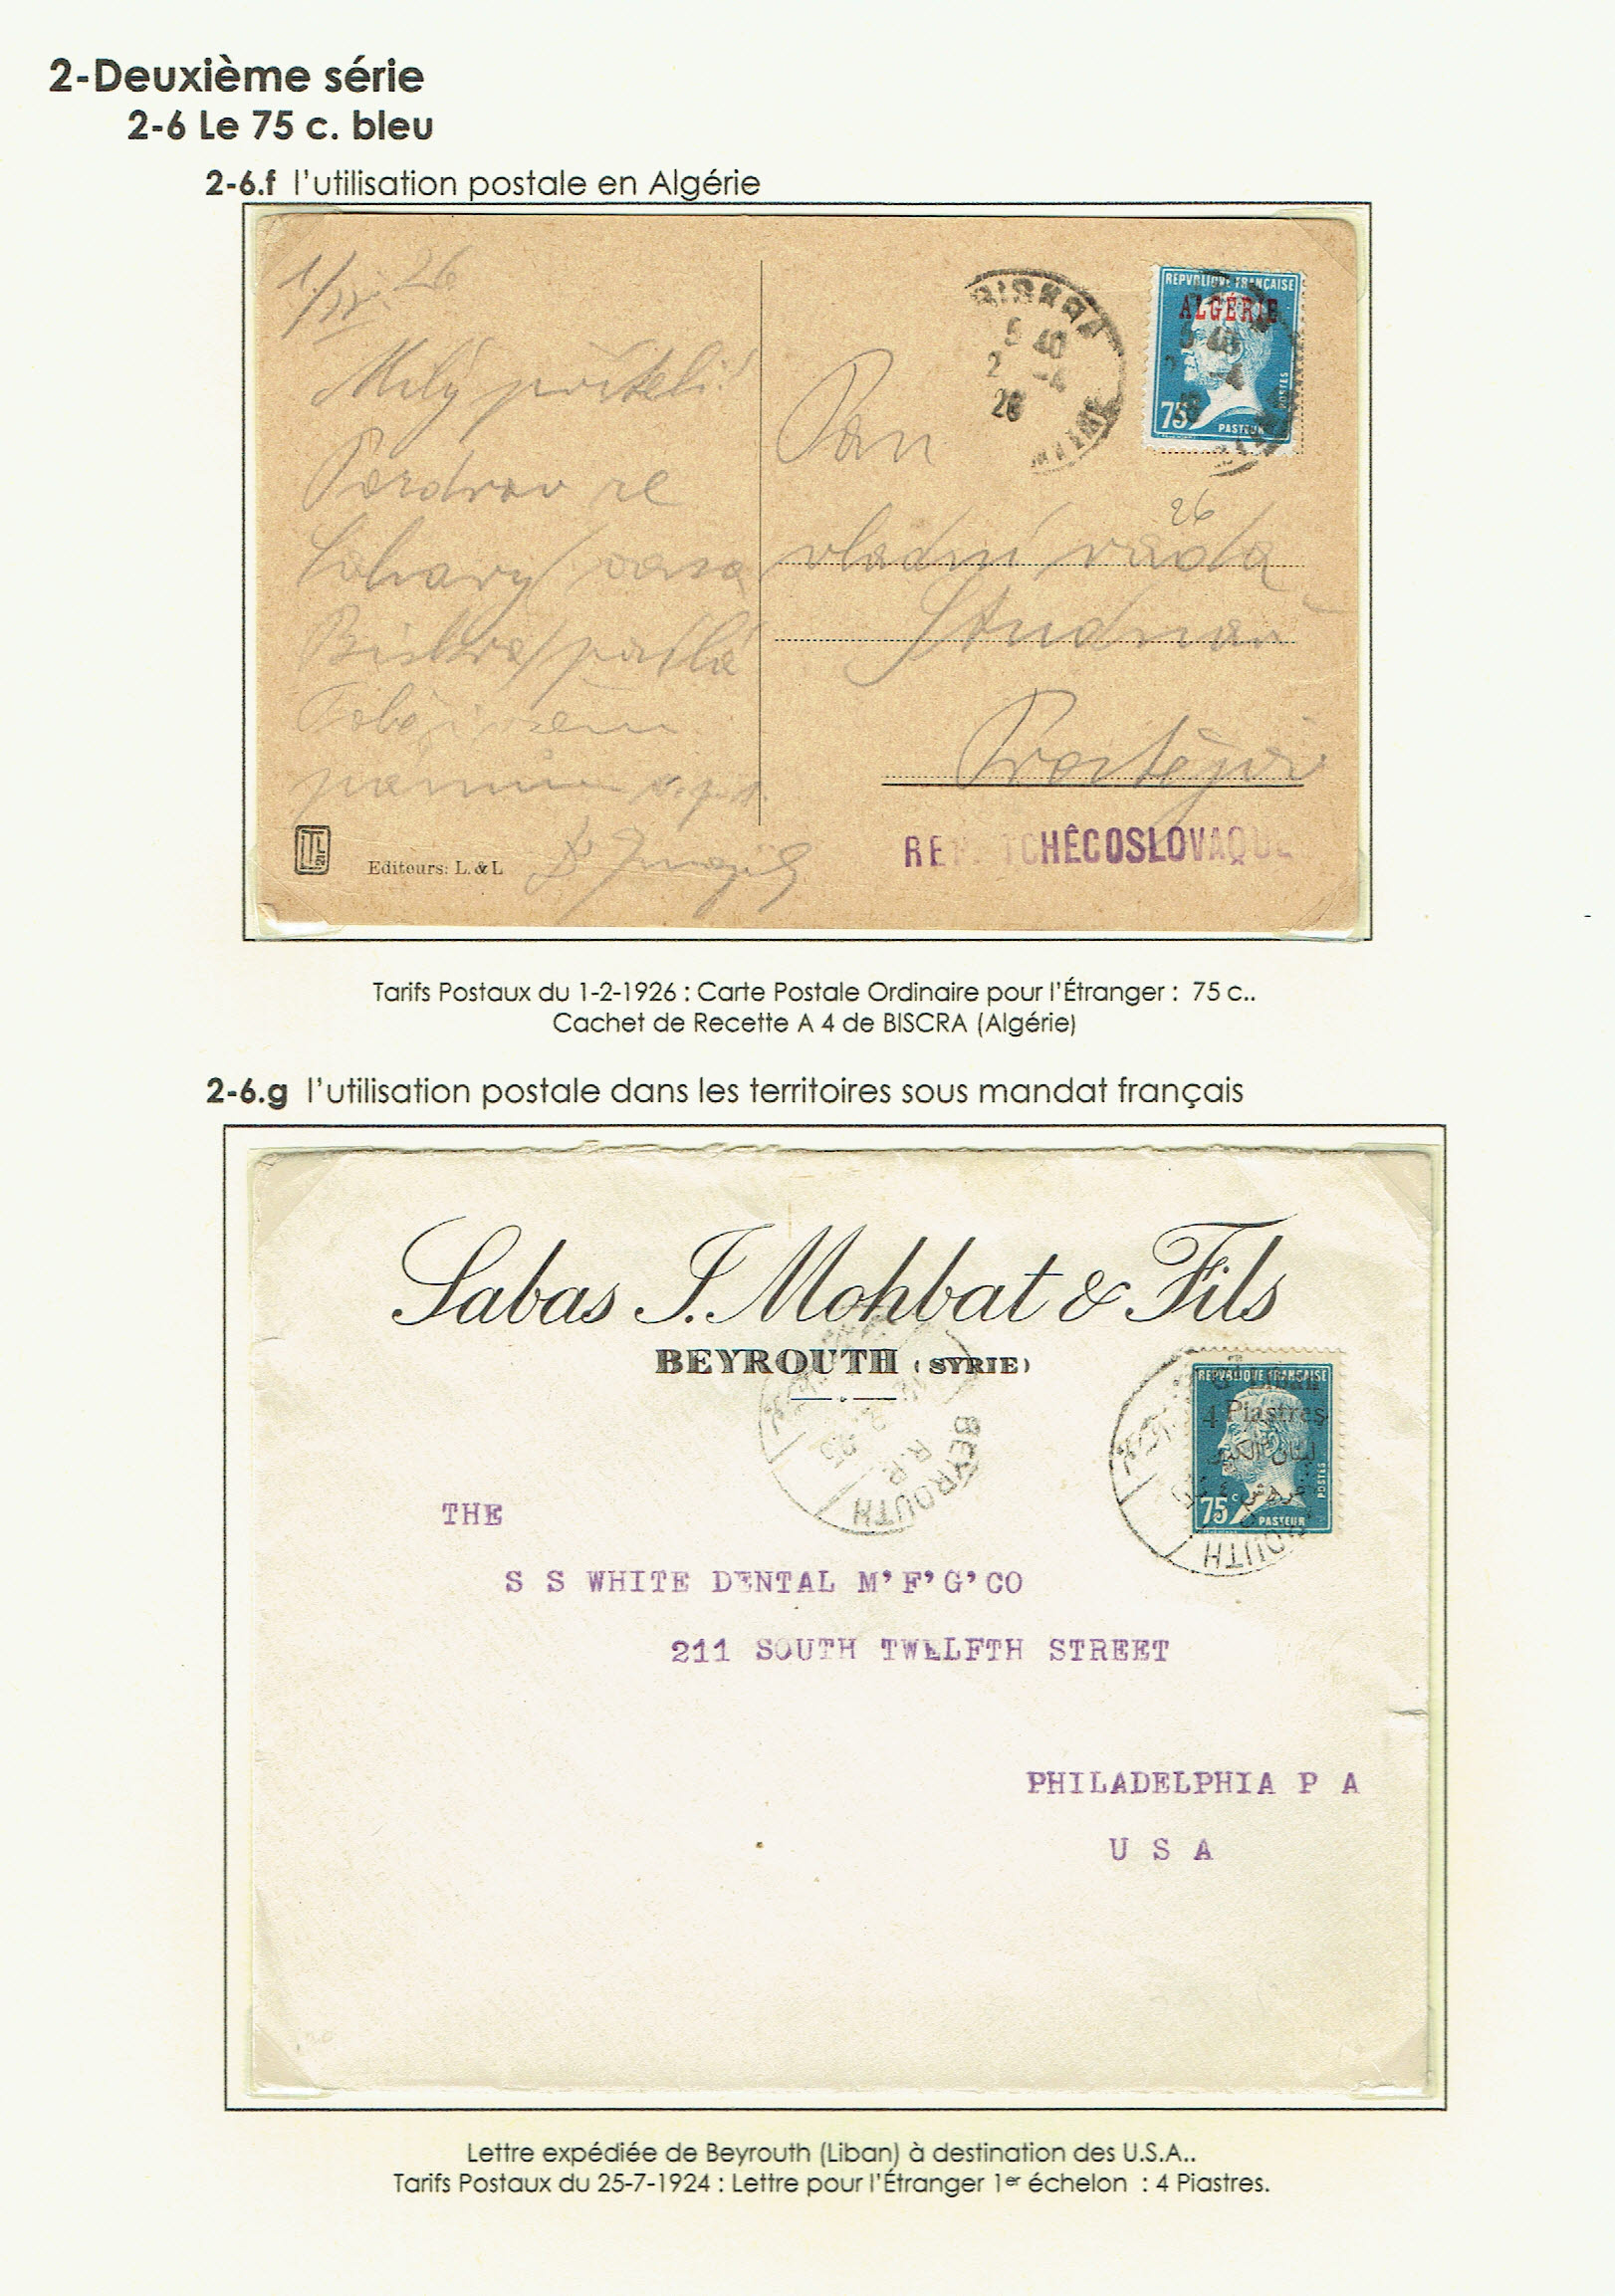 2-Deuxième série
2-6 Le 75 c. bleu
2-6.f l'utilisation postale en Algérie
26
Milý příteli!
Pozdrav ze
Sahary /oasa
Biskra/
Pan
vládní rada
Prostějov
26
REPVBLIQVE FRANÇAISE
ALGÉRIE
75
POSTES
PASTEUR
BISKRA
5 40
2 -4
26
REP. TCHÊCOSLOVAQUE
Editeurs: L. & L
Tarifs Postaux du 1-2-1926 : Carte Postale Ordinaire pour l'Étranger : 75 c..
Cachet de Recette A 4 de BISCRA (Algérie)
2-6.g l'utilisation postale dans les territoires sous mandat français
Sabas J. Mohbat & Fils
BEYROUTH (SYRIE)
BEYROUTH
R.P.
REPVBLIQVE FRANÇAISE
Gd Liban
4 Piastres
لبنان الكبير
غروش ٤
75c
POSTES
PASTEUR
THE
S S WHITE DENTAL M'F'G'CO
211 SOUTH TWELFTH STREET
PHILADELPHIA P A
U S A
Lettre expédiée de Beyrouth (Liban) à destination des U.S.A..
Tarifs Postaux du 25-7-1924 : Lettre pour l'Étranger 1er échelon : 4 Piastres.